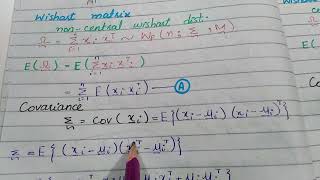 Wishart matrix
non-central wishart dist.
Ω = Σ xᵢ xᵢᵀ ~ Wp(n; Σ, M)
i=1
E(Ω) = E(Σ xᵢ xᵢᵀ)
= Σ E(xᵢ xᵢᵀ) — A
i=1
Covariance
Σ = cov(xᵢ) = E{(xᵢ - μᵢ)(xᵢ - μᵢ)ᵀ}
Σ = E{(xᵢ - μᵢ)(xᵢᵀ - μᵢᵀ)}